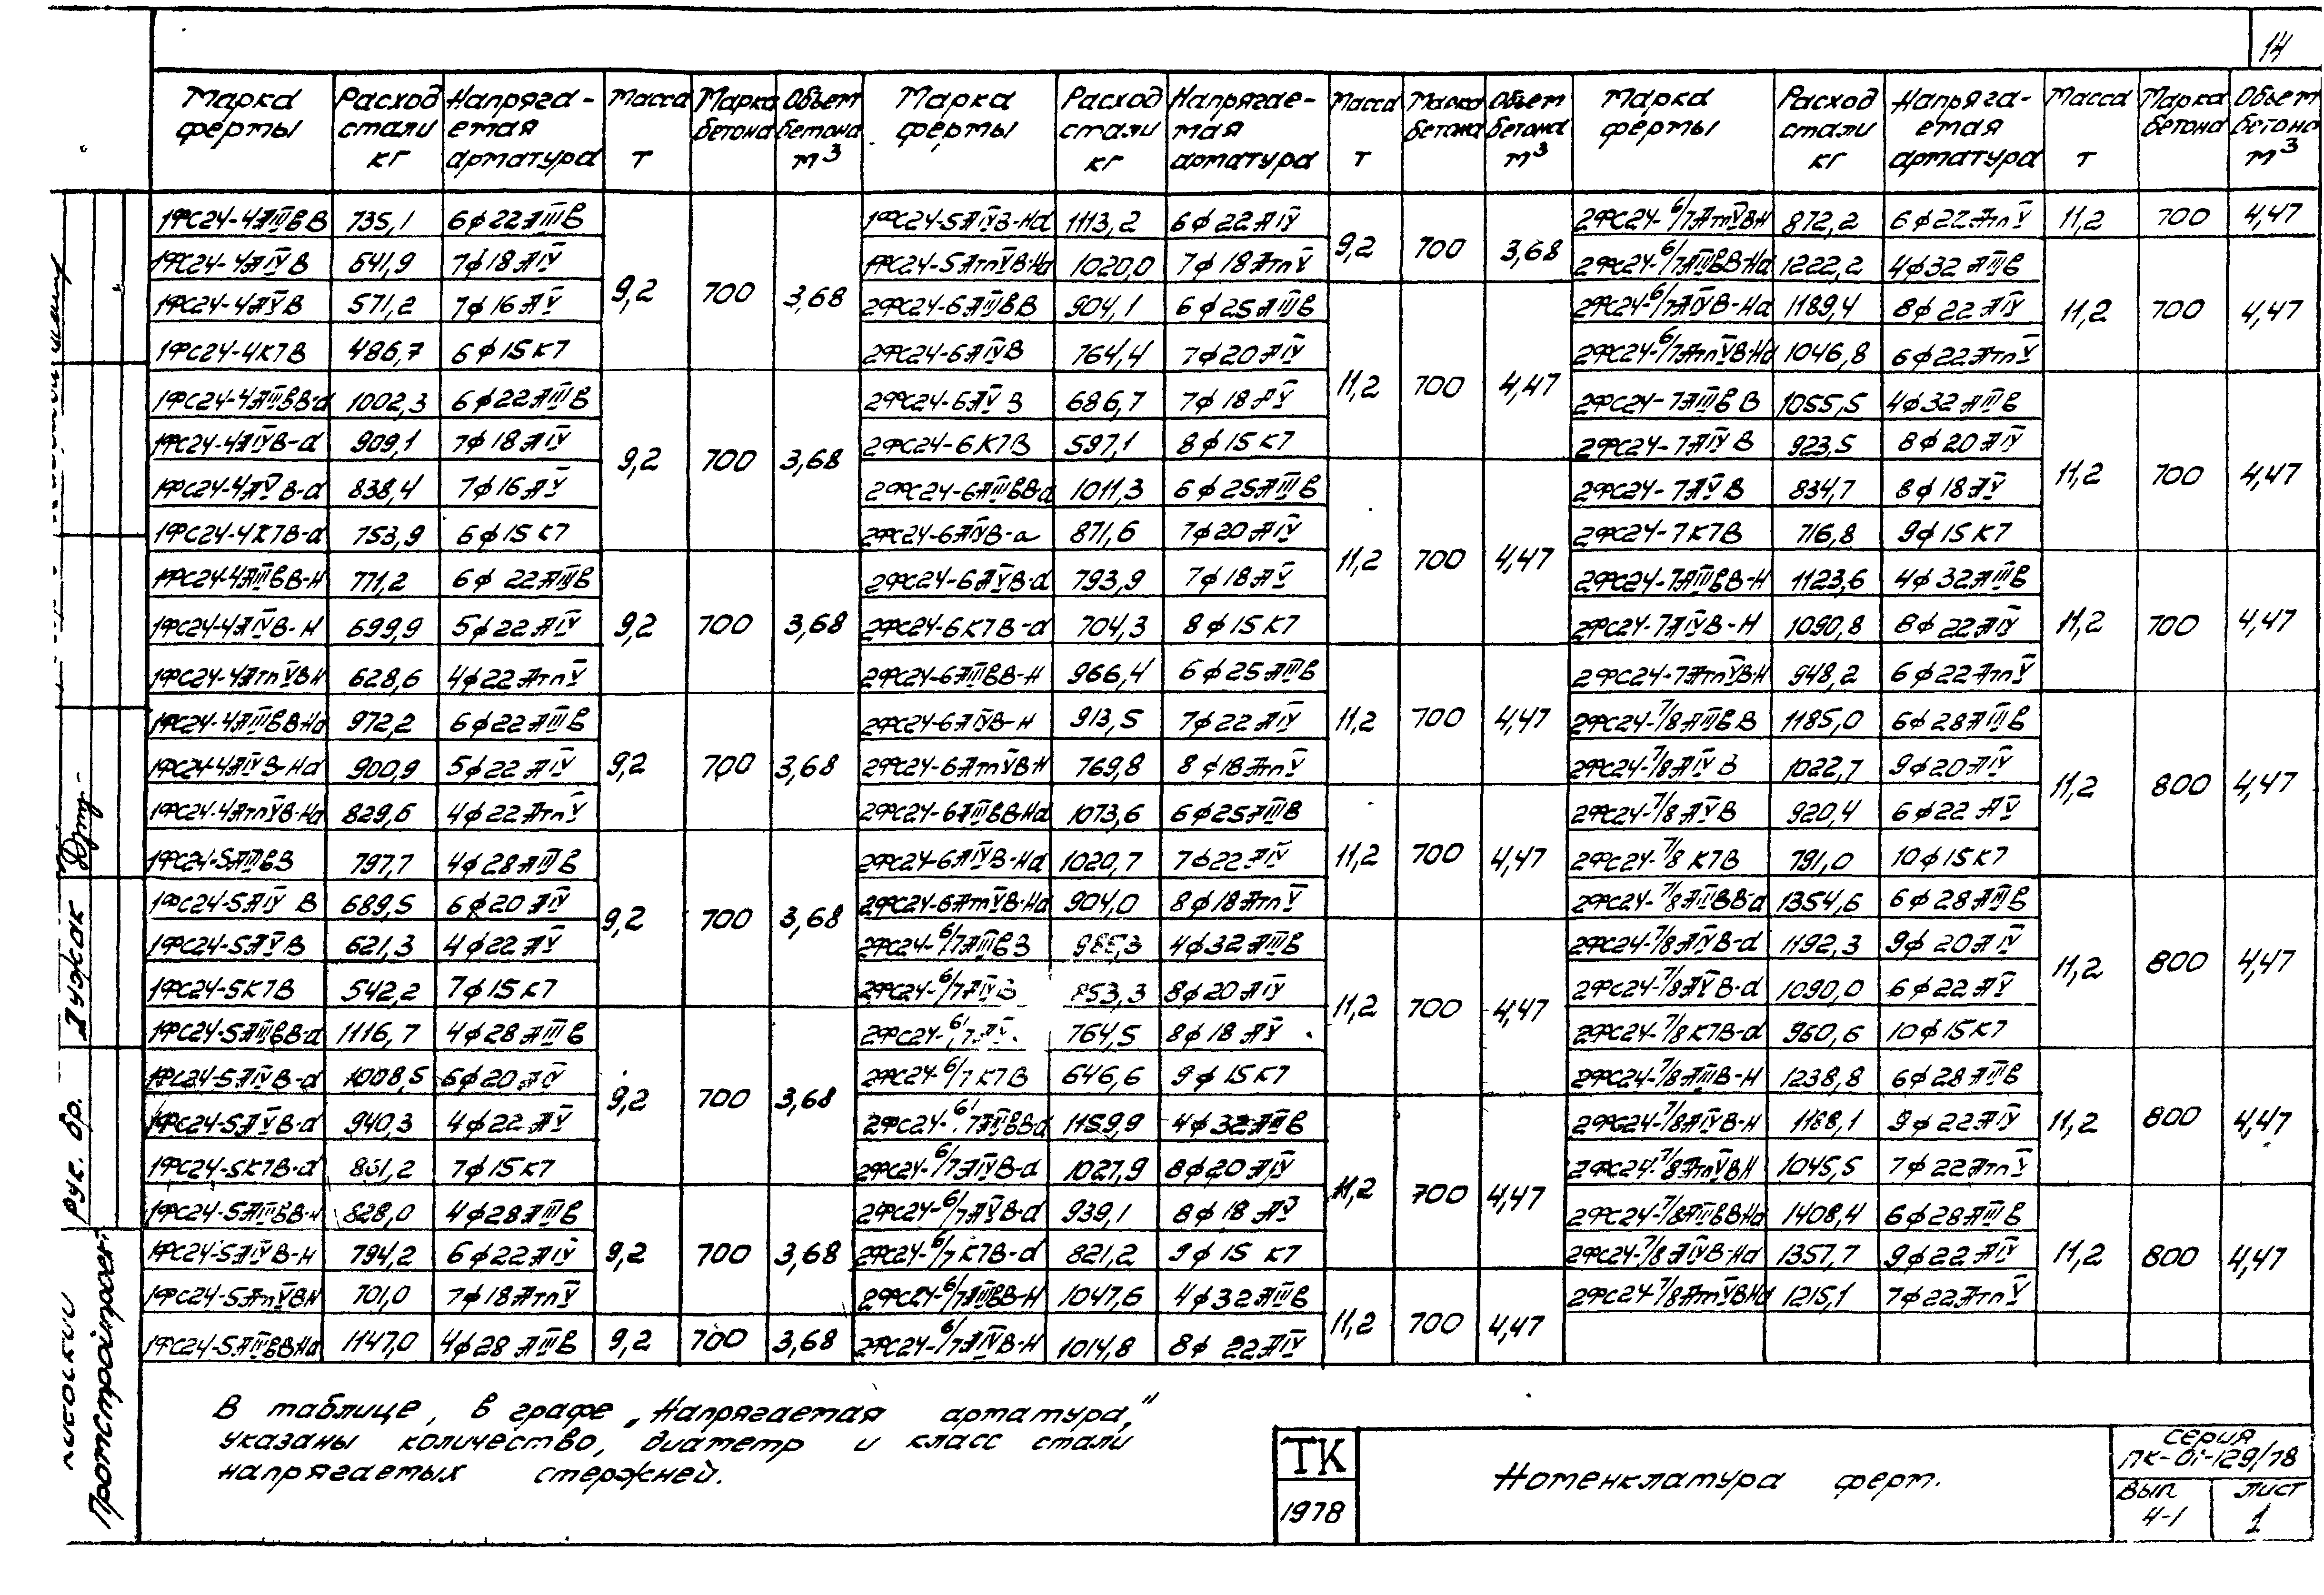 14
Марка фермы | Расход стали кг | Напрягаемая арматура | Масса т | Марка бетона | Объем бетона м³ | Марка фермы | Расход стали кг | Напрягаемая арматура | Масса т | Марка бетона | Объем бетона м³ | Марка фермы | Расход стали кг | Напрягаемая арматура | Масса т | Марка бетона | Объем бетона м³
1ФС24-4АIIIвВ 735,1 6ф22АIIIв
1ФС24-4АIVВ 641,9 7ф18АIV
1ФС24-4АVВ 571,2 7ф16АV
1ФС24-4К7В 486,7 6ф15К7
9,2 700 3,68
1ФС24-4АIIIвВ-а 1002,3 6ф22АIIIв
1ФС24-4АIVВ-а 909,1 7ф18АIV
1ФС24-4АVВ-а 838,4 7ф16АV
1ФС24-4К7В-а 753,9 6ф15К7
9,2 700 3,68
1ФС24-4АIIIвВ-Н 771,2 6ф22АIIIв
1ФС24-4АIVВ-Н 699,9 5ф22АIV
1ФС24-4АтVВН 628,6 4ф22АтV
9,2 700 3,68
1ФС24-4АIIIвВНа 972,2 6ф22АIIIв
1ФС24-4АIVВ-На 900,9 5ф22АIV
1ФС24-4АтVВ-На 829,6 4ф22АтV
9,2 700 3,68
1ФС24-5АIIIвВ 797,7 4ф28АIIIв
1ФС24-5АIVВ 689,5 6ф20АIV
1ФС24-5АVВ 621,3 4ф22АV
1ФС24-5К7В 542,2 7ф15К7
9,2 700 3,68
1ФС24-5АIIIвВ-а 1116,7 4ф28АIIIв
1ФС24-5АIVВ-а 1008,5 6ф20АIV
1ФС24-5АVВ-а 940,3 4ф22АV
1ФС24-5К7В-а 861,2 7ф15К7
9,2 700 3,68
1ФС24-5АIIIвВ-Н 828,0 4ф28АIIIв
1ФС24-5АIVВ-Н 794,2 6ф22АIV
1ФС24-5АтVВН 701,0 7ф18АтV
9,2 700 3,68
1ФС24-5АIIIвВНа 1147,0 4ф28АIIIв 9,2 700 3,68
1ФС24-5АIVВ-На 1113,2 6ф22АIV
1ФС24-5АтVВ-На 1020,0 7ф18АтV
9,2 700 3,68
2ФС24-6АIIIвВ 904,1 6ф25АIIIв
2ФС24-6АIVВ 764,4 7ф20АIV
2ФС24-6АVВ 686,7 7ф18АV
2ФС24-6К7В 597,1 8ф15К7
11,2 700 4,47
2ФС24-6АIIIвВ-а 1011,3 6ф25АIIIв
2ФС24-6АIVВ-а 871,6 7ф20АIV
2ФС24-6АVВ-а 793,9 7ф18АV
2ФС24-6К7В-а 704,3 8ф15К7
11,2 700 4,47
2ФС24-6АIIIвВ-Н 966,4 6ф25АIIIв
2ФС24-6АIVВ-Н 913,5 7ф22АIV
2ФС24-6АтVВН 769,8 8ф18АтV
11,2 700 4,47
2ФС24-6АIIIвВНа 1073,6 6ф25АIIIв
2ФС24-6АIVВ-На 1020,7 7ф22АIV
2ФС24-6АтVВ-На 904,0 8ф18АтV
11,2 700 4,47
2ФС24-6/7АIIIвВ 985,3 4ф32АIIIв
2ФС24-6/7АIVВ 853,3 8ф20АIV
2ФС24-6/7АV 764,5 8ф18АV
2ФС24-6/7К7В 646,6 9ф15К7
11,2 700 4,47
2ФС24-6/7АIIIвВ-а 1159,9 4ф32АIIIв
2ФС24-6/7АIVВ-а 1027,9 8ф20АIV
2ФС24-6/7АVВ-а 939,1 8ф18АV
2ФС24-6/7К7В-а 821,2 9ф15 К7
11,2 700 4,47
2ФС24-6/7АIIIвВ-Н 1047,6 4ф32АIIIв
2ФС24-6/7АIVВ-Н 1014,8 8ф22АIV
11,2 700 4,47
2ФС24-6/7АтVВН 872,2 6ф22АтV 11,2 700 4,47
2ФС24-6/7АIIIвВНа 1222,2 4ф32АIIIв
2ФС24-6/7АIVВ-На 1189,4 8ф22АIV
2ФС24-6/7АтVВ-На 1046,8 6ф22АтV
11,2 700 4,47
2ФС24-7АIIIвВ 1055,5 4ф32АIIIв
2ФС24-7АIVВ 923,5 8ф20АIV
2ФС24-7АVВ 834,7 8ф18АV
2ФС24-7К7В 716,8 9ф15К7
11,2 700 4,47
2ФС24-7АIIIвВ-Н 1123,6 4ф32АIIIв
2ФС24-7АIVВ-Н 1090,8 8ф22АIV
2ФС24-7АтVВН 948,2 6ф22АтV
11,2 700 4,47
2ФС24-7/8АIIIвВ 1185,0 6ф28АIIIв
2ФС24-7/8АIVВ 1022,7 9ф20АIV
2ФС24-7/8АVВ 920,4 6ф22АV
2ФС24-7/8К7В 791,0 10ф15К7
11,2 800 4,47
2ФС24-7/8АIIIвВ-а 1354,6 6ф28АIIIв
2ФС24-7/8АIVВ-а 1192,3 9ф20АIV
2ФС24-7/8АVВ-а 1090,0 6ф22АV
2ФС24-7/8К7В-а 960,6 10ф15К7
11,2 800 4,47
2ФС24-7/8АIIIВ-Н 1238,8 6ф28АIIIв
2ФС24-7/8АIVВ-Н 1188,1 9ф22АIV
2ФС24-7/8АтVВН 1045,5 7ф22АтV
11,2 800 4,47
2ФС24-7/8АIIIвВНа 1408,4 6ф28АIIIв
2ФС24-7/8АIVВ-На 1357,7 9ф22АIV
2ФС24-7/8АтVВНа 1215,1 7ф22АтV
11,2 800 4,47
В таблице, в графе „Напрягаемая арматура,"
указаны количество, диаметр и класс стали
напрягаемых стержней.
ТК
1978
Номенклатура ферм.
серия
ПК-01-129/78
вып
4-1
лист
1
рук. бр.
Промстройпроект